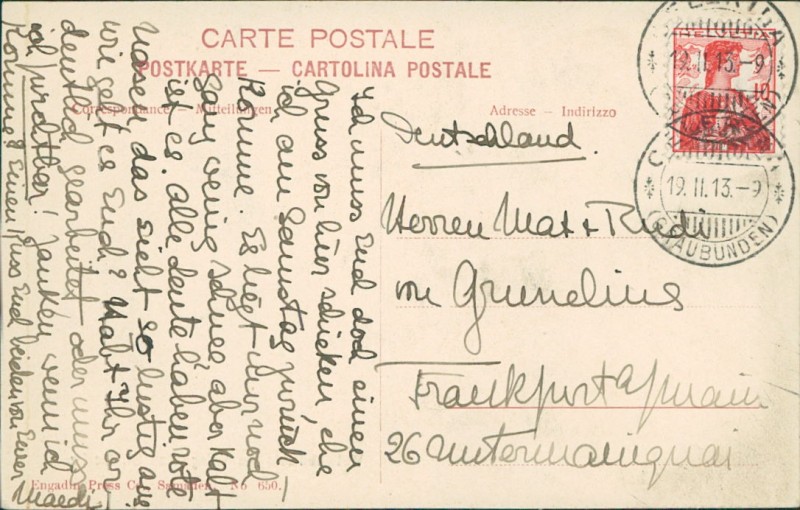 CARTE POSTALE
POSTKARTE — CARTOLINA POSTALE
Correspondance — Mitteilungen
Adresse — Indirizzo
CELERINA
19.II.13.-9
10
CELERINA
19.II.13.-9
(GRAUBÜNDEN)
Ich muss Euch doch einen
Gruss von hier schicken, ehe
ich am Samstag zurück
komme. Es liegt nur noch
ganz wenig Schnee, aber kalt
ist es. Alle Leute haben rote
Nasen, das sieht so lustig aus!
Wie geht es Euch? Habt Ihr or-
dentlich gearbeitet oder muss
ich furchtbar! zanken wenn ich
komme? Einen Kuss Euch beiden von Eurer
Maedi
Deutschland.
Herren Max + Rudi
von Grunelius
Frankfurt a/main
26 Untermainquai
Engadin Press Co., Samaden. No 650.